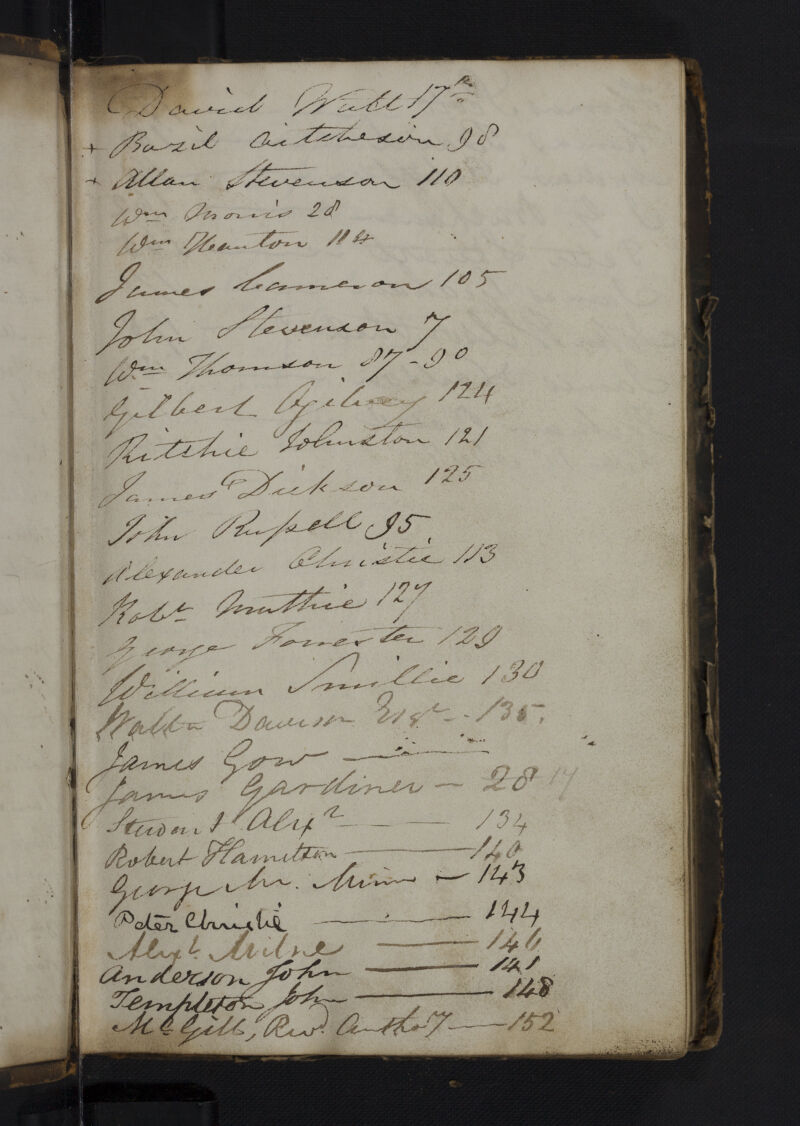 David Watt 17
+ Bazil Aitcheson 98
+ Allan Stevenson 110
Wm Morris 28
Wm Heanton 114
James Cameron 105
John Stevenson 7
Wm Thomson 87-90
Gilbert Ogilvey 124
Ritchie Johnston 121
James Dickson 125
John Russell 95
Alexander Christie 113
Robt Muthie 127
George Forrester 129
William Smillie 130
Walter Davison Esqr - 135.
James Gow
James Gardiner - 28 14
Stewart Alexr 134
Robert Hamilton 140
George Mc. Minn - 143
Peter Christie 144
Alexr Milne 146
Anderson John 141
Templeton John 148
McGill, Revd. Anthoy 152